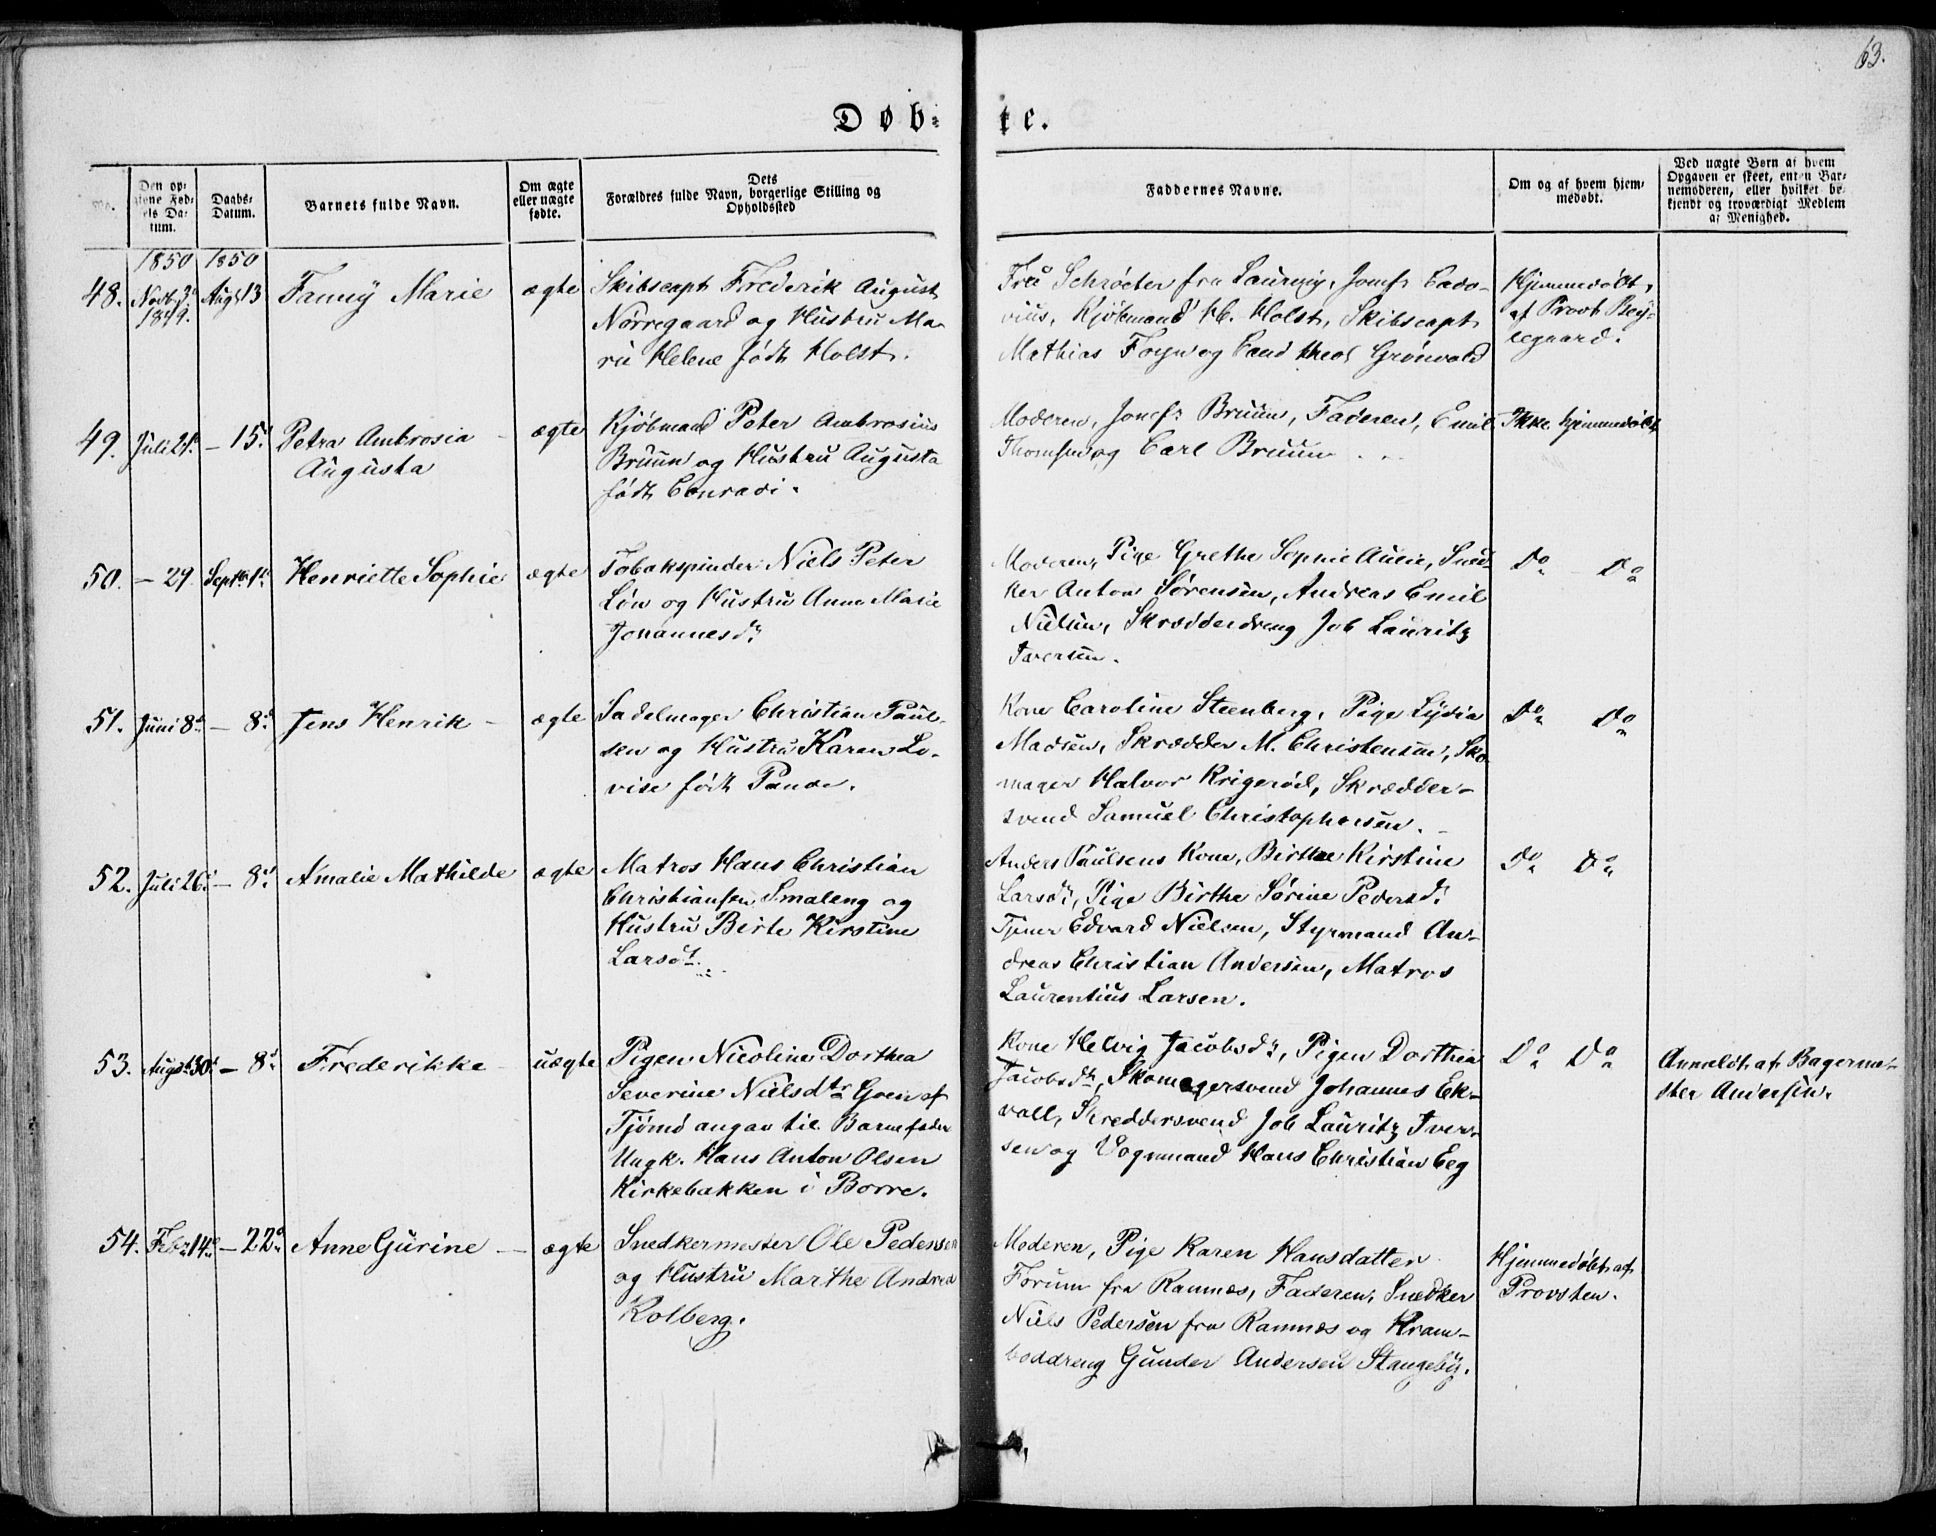 63.
Døb-
te.
No.
Den op-
givne Fød-
sels Da-
tum.
Daabs-
Datum.
Barnets fulde Navn.
Om ægte
eller uægte
fødte.
Dets
Forældres fulde Navn, borgerlige Stilling og
Opholdssted
Faddernes Navne.
Om og af hvem hjem-
medøbt.
Ved uægte Børn af hvem
Opgaven er skeet, enten Bar-
nemoderen, eller hvilket be-
kjendt og troværdigt Medlem
af Menighed.
1850 1850
48. Novbr 3d 1849. Augt 13 Fanny Marie ægte
Skibscapt Frederik August
Nørregaard og Hustru Ma-
rie Helene født Holst.
Fru Schrøeter fra Laurvig, Jomfr Cado-
vius, Kjøbmand H. Holst, Skibscapt
Mathias Foyn og Cand theol Grønvold
Hjemmedøbt,
af Provst Bey-
legaard.
49. Juli 21d. - 15d Petra Ambrosia - ægte
Augusta
Kjøbmand Peter Ambrosius
Bruun og Hustru Augusta
født Conradi.
Moderen, Jomfr Bruun, Faderen, Emil
Thomsen og Carl Bruun
Ikke hjemmedøbt
50. - 29. Septbr 1d. Henriette Sophie ægte
Tobakspinder Niels Peter
Løn og Hustru Anne Marie
Johannesdr
Moderen, Pige Grethe Sophie, Sned-
ker Anton Sørensen, Andreas Emil
Nielsen, Skrædderdreng Job Lauritz
Iversen.
Do Do
51. Juni 8d. - 8d. Jens Henrik - ægte
Sadelmager Christian Paul-
sen og Hustru Karen Lo-
vise født Pande.
Kone Caroline Steenberg, Pige Lydia
Madsen, Skrædder M. Christensen, Sko-
mager Halvor Krigerød, Skrædder-
svend Samuel Christophersen.
Do Do
52. Juli 26d - 8d. Amalie Mathilde ægte
Matros Hans Christian
Christiansen Smaleng og
Hustru Birte Kirstine
Larsdt.
Anders Paulsens Kone, Birthe Kirstine
Larsdr, Pige Birthe Sørine Pedersd.
Tjener Edvard Nielsen, Styrmand An-
dreas Christian Andersen, Matros
Laurentius Larsen.
Do Do
53. Augst 30d - 8d. Frederikke - uægte
Pigen Nicoline Dorthea
Severine Nielsdtr Goen af
Tjømø angav til Barnefader
Ungk. Hans Anton Olsen
Kirkebakken i Borre.
Kone Helvig Jacobsdr, Pigen Dorthea
Jacobsdr, Skomagersvend Johannes Ek-
vall, Skreddersvend Job Lauritz Iver-
sen og Vognmand Hans Christian Eeg
Do Do
Anmeldt af Bagerme-
ster Andersen.
54. Febr 14d. - 22d. Anne Gurine - ægte
Snedkermester Ole Pedersen
og Hustru Marthe Andrea
Kolberg.
Moderen, Pige Karen Hansdatter
Forum fra Ramnæs, Faderen, Snedker
Niels Pedersen fra Ramnæs og Kram-
boddreng Gunder Andersen Stangeby.
Hjemmedøbt af
Provsten.